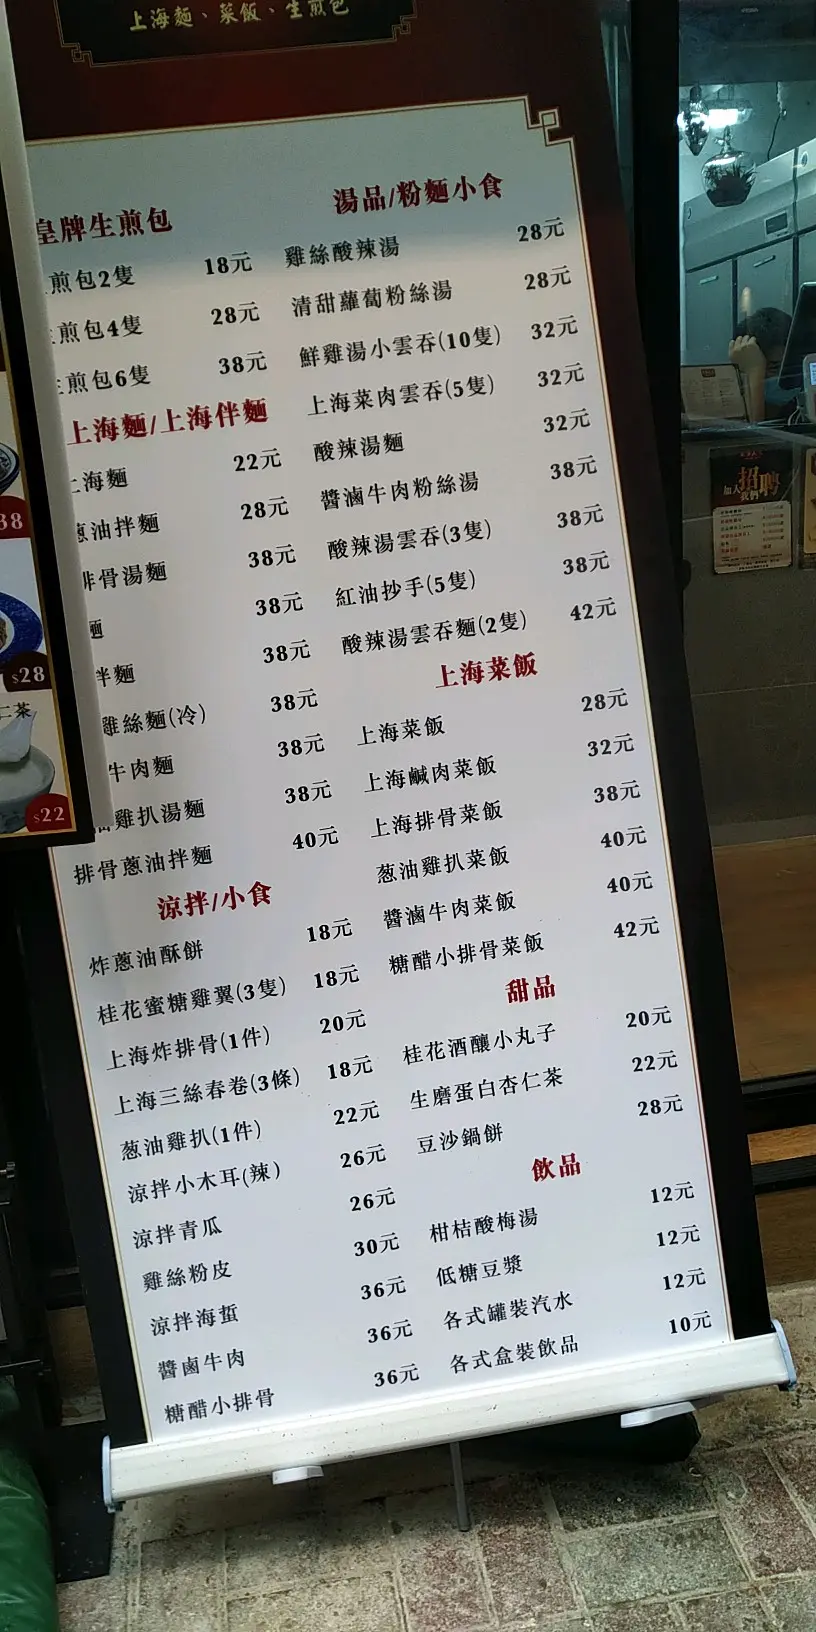 上海麵、菜飯、生煎包
皇牌生煎包
煎包2隻 18元
煎包4隻 28元
煎包6隻 38元
上海麵/上海伴麵
海麵 22元
油拌麵 28元
排骨湯麵 38元
麵 38元
拌麵 38元
雞絲麵(冷) 38元
牛肉麵 38元
雞扒湯麵 38元
排骨蔥油拌麵 40元
涼拌/小食
炸蔥油酥餅 18元
桂花蜜糖雞翼(3隻) 18元
上海炸排骨(1件) 20元
上海三絲春卷(3條) 18元
葱油雞扒(1件) 22元
涼拌小木耳(辣) 26元
涼拌青瓜 26元
雞絲粉皮 30元
涼拌海蜇 36元
醬鹵牛肉 36元
糖醋小排骨 36元
湯品/粉麵小食
雞絲酸辣湯 28元
清甜蘿蔔粉絲湯 28元
鮮雞湯小雲吞(10隻) 32元
上海菜肉雲吞(5隻) 32元
酸辣湯麵 32元
醬滷牛肉粉絲湯 38元
酸辣湯雲吞(3隻) 38元
紅油抄手(5隻) 38元
酸辣湯雲吞麵(2隻) 42元
上海菜飯
上海菜飯 28元
上海鹹肉菜飯 32元
上海排骨菜飯 38元
葱油雞扒菜飯 40元
醬滷牛肉菜飯 40元
糖醋小排骨菜飯 42元
甜品
桂花酒釀小丸子 20元
生磨蛋白杏仁茶 22元
豆沙鍋餅 28元
飲品
柑桔酸梅湯 12元
低糖豆漿 12元
各式罐裝汽水 12元
各式盒裝飲品 10元
38
$28
仁茶
$22
加入我們
招聘